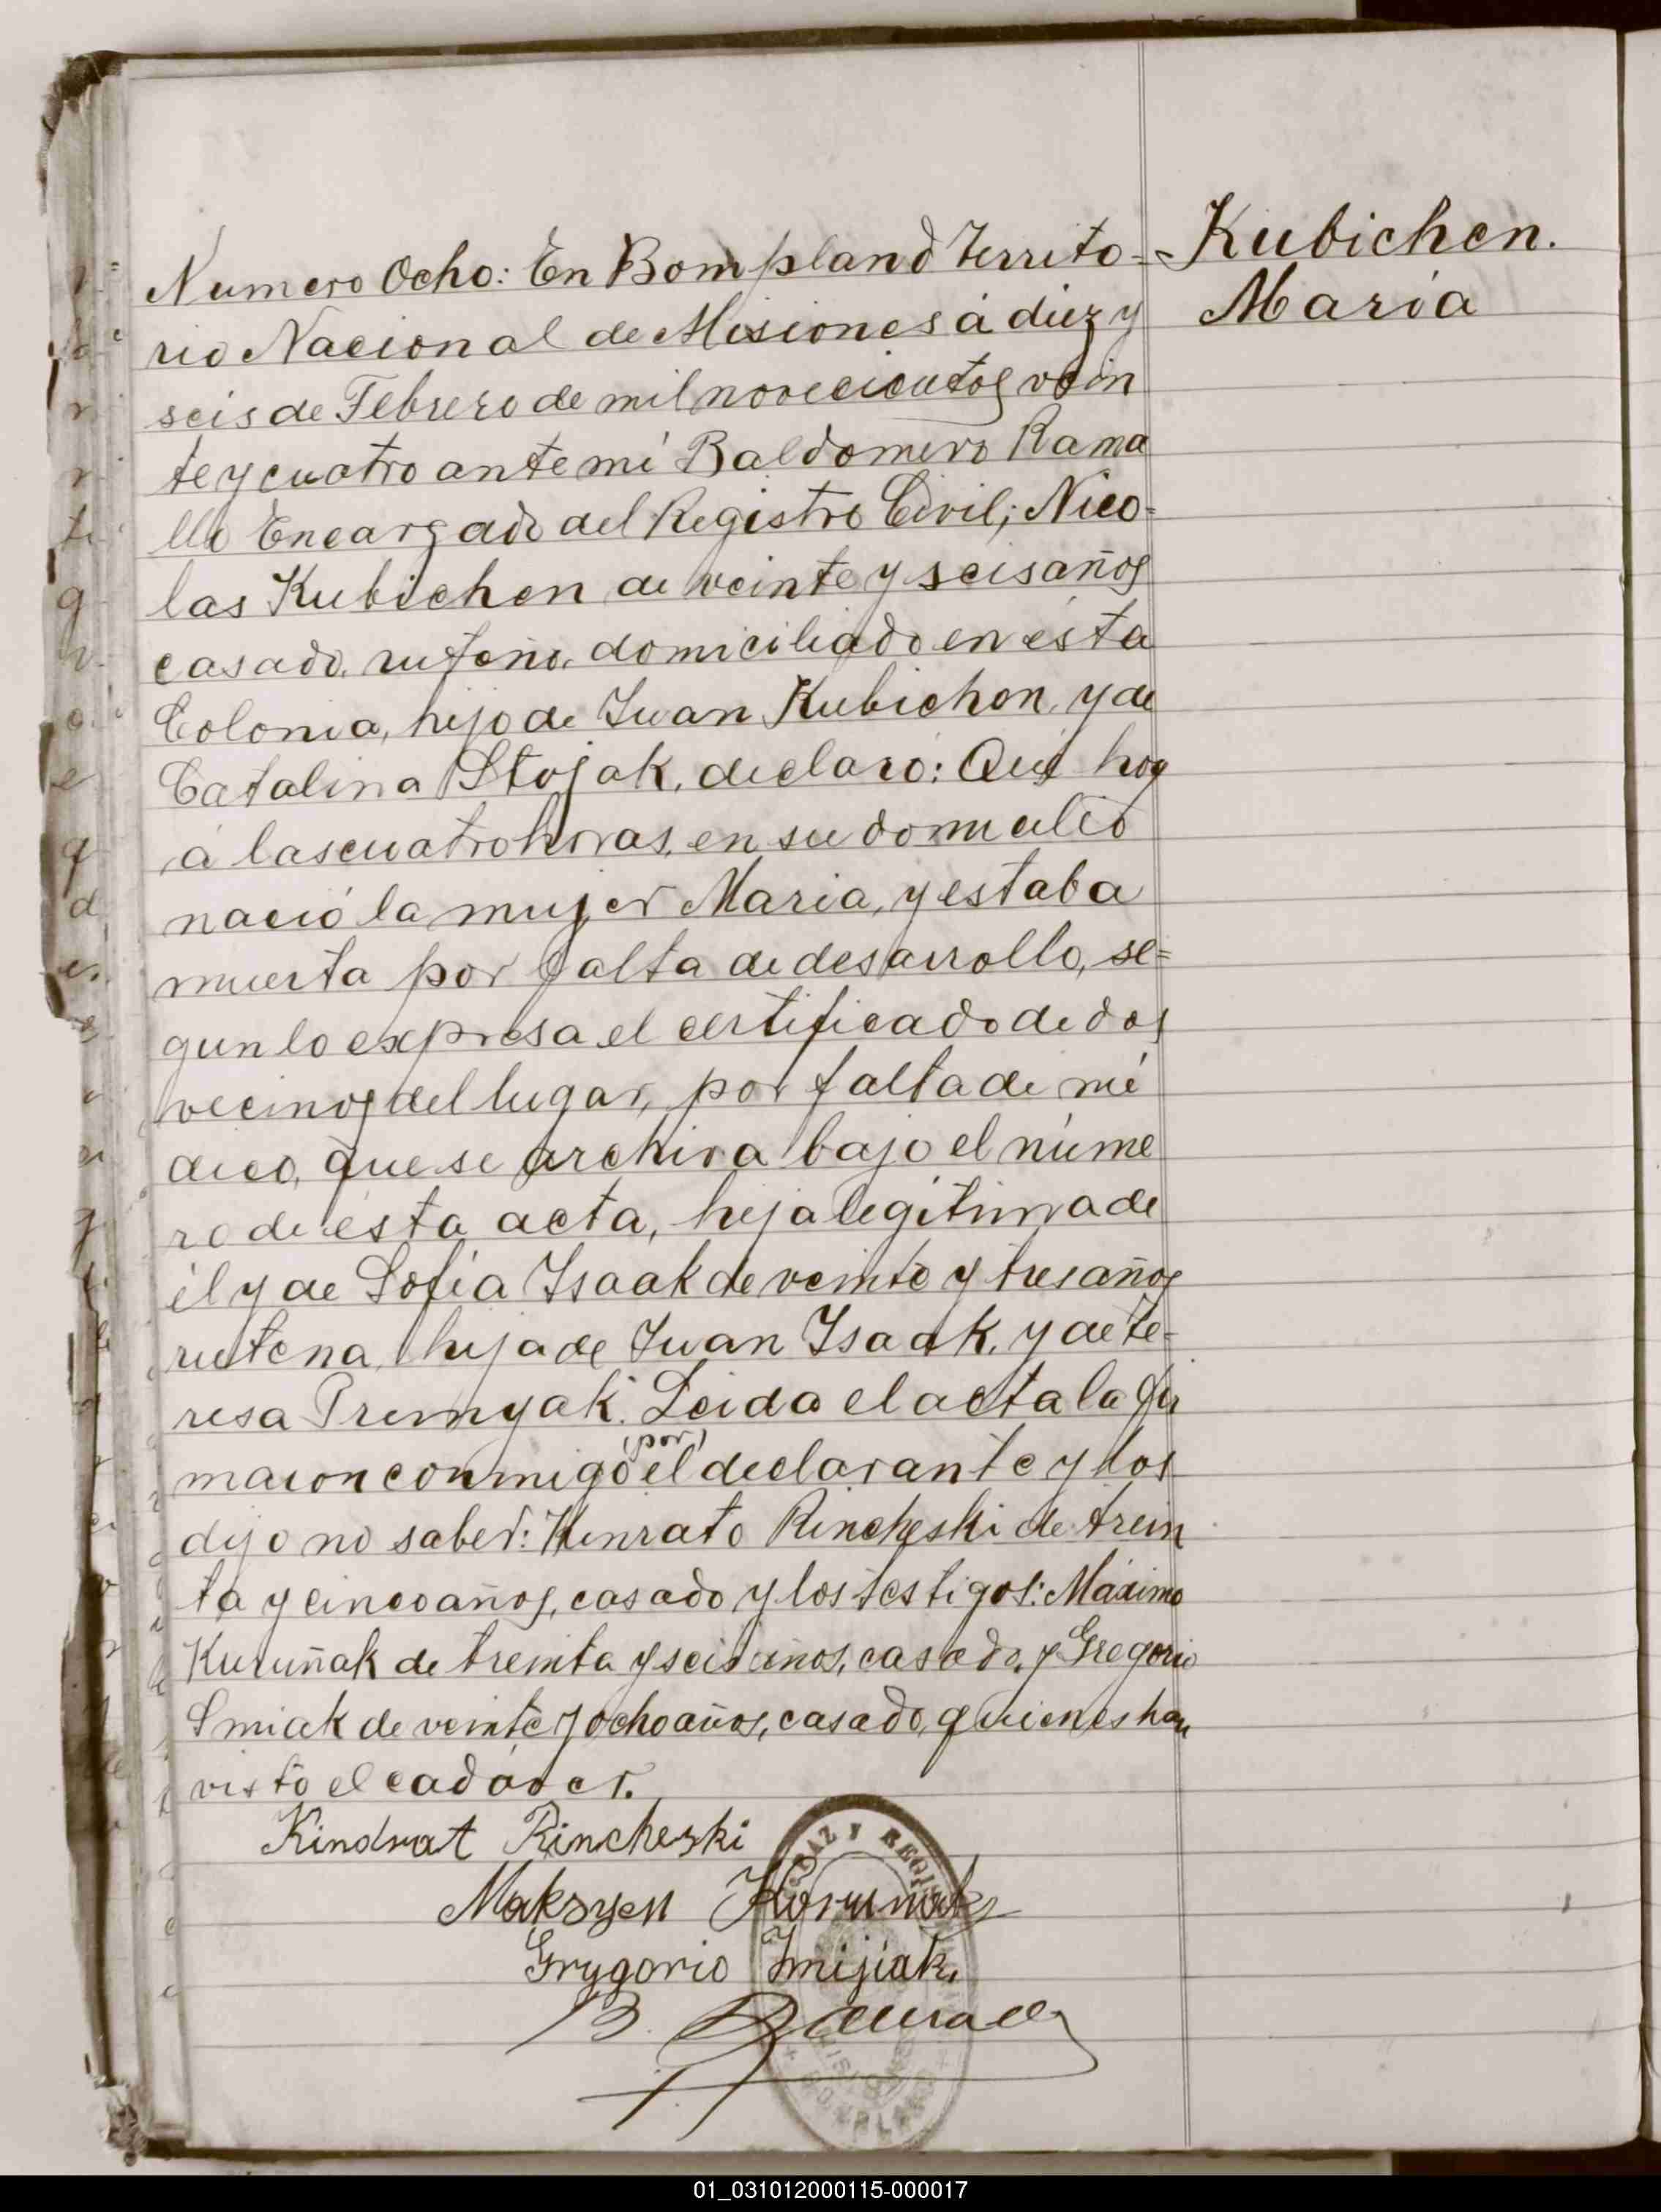 Kubichen.
Maria
Numero Ocho: En Bompland Territo=
rio Nacional de Misiones á diez y
seis de Febrero de mil novecientos vein
te y cuatro ante mí Baldomero Rama
llo Encargado del Registro Civil; Nico=
las Kubichen de veinte y seis años
casado, ruteno, domiciliado en ésta
Colonia, hijo de Juan Kubichen, y de
Catalina Stojak, declaró: Que hoy
á las cuatro horas, en su domicilio
nació la mujer Maria, y estaba
muerta por falta de desarrollo, se=
gun lo expresa el certificado de dos
vecinos del lugar, por falta de mé
dico, que se archiva bajo el núme
ro de ésta acta, hija legítima de
él y de Sofía Isaak de veinte y tres años
rutena, hija de Juan Isaak, y de Te=
resa Premyak. Leida el acta la fir
maron conmigo (por) el declarante y los
dijo no saber: Kunrato Rincheski de trein
ta y cinco años, casado y los testigos: Máximo
Kuruñak de treinta y seis años, casado, y Gregorio
Smiak de veinte y ocho años, casado, quienes han
visto el cadáver.
Kindrat Rincheski
Maksyen Korunak
Grygorio Smijiak.
B. Ramallo
PAZ Y REGI
01_031012000115-000017